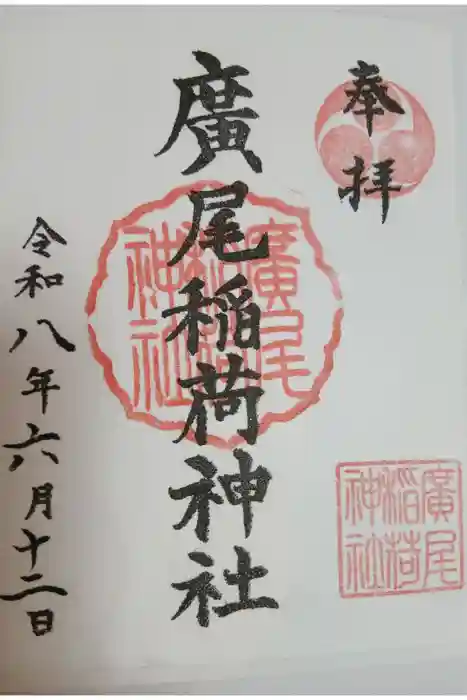 奉拝
廣尾稲荷神社
令和八年六月十二日
廣尾
稲荷
神社
廣尾
稲荷
神社